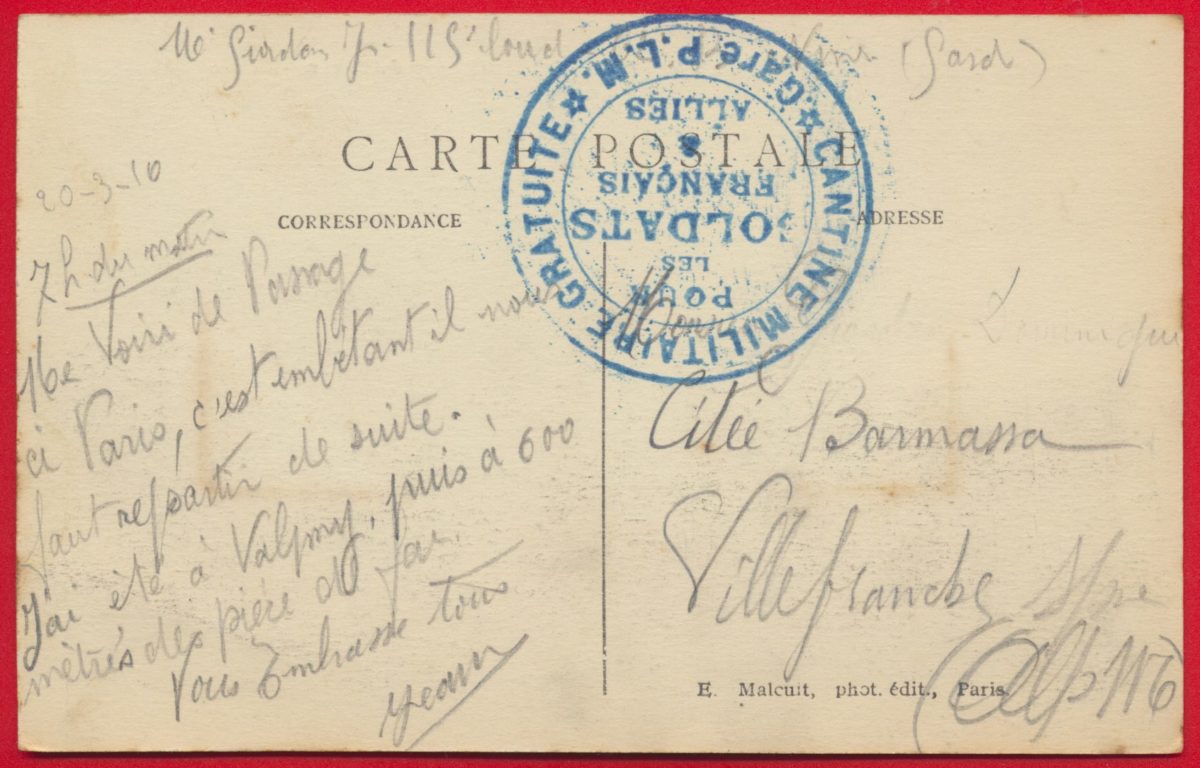 Mr Girdon J. 115 lourd (Gard)
CARTE POSTALE
CORRESPONDANCE
ADRESSE
CANTINE MILITAIRE GRATUITE
Gare P.L.M.
POUR
LES
SOLDATS
FRANÇAIS
&
ALLIÉS
20-3-16
7h du matin
Me Voici de Passage
à Paris, c'est embêtant il nous
faut repartir de suite.
J'ai été à Valmy, puis à 600
mètres des pièce de
Vous Embrasse tous
Jean
Citée Barmassa
Villefranche
(Alp Mt)
E. Malcuit, phot. édit., Paris.